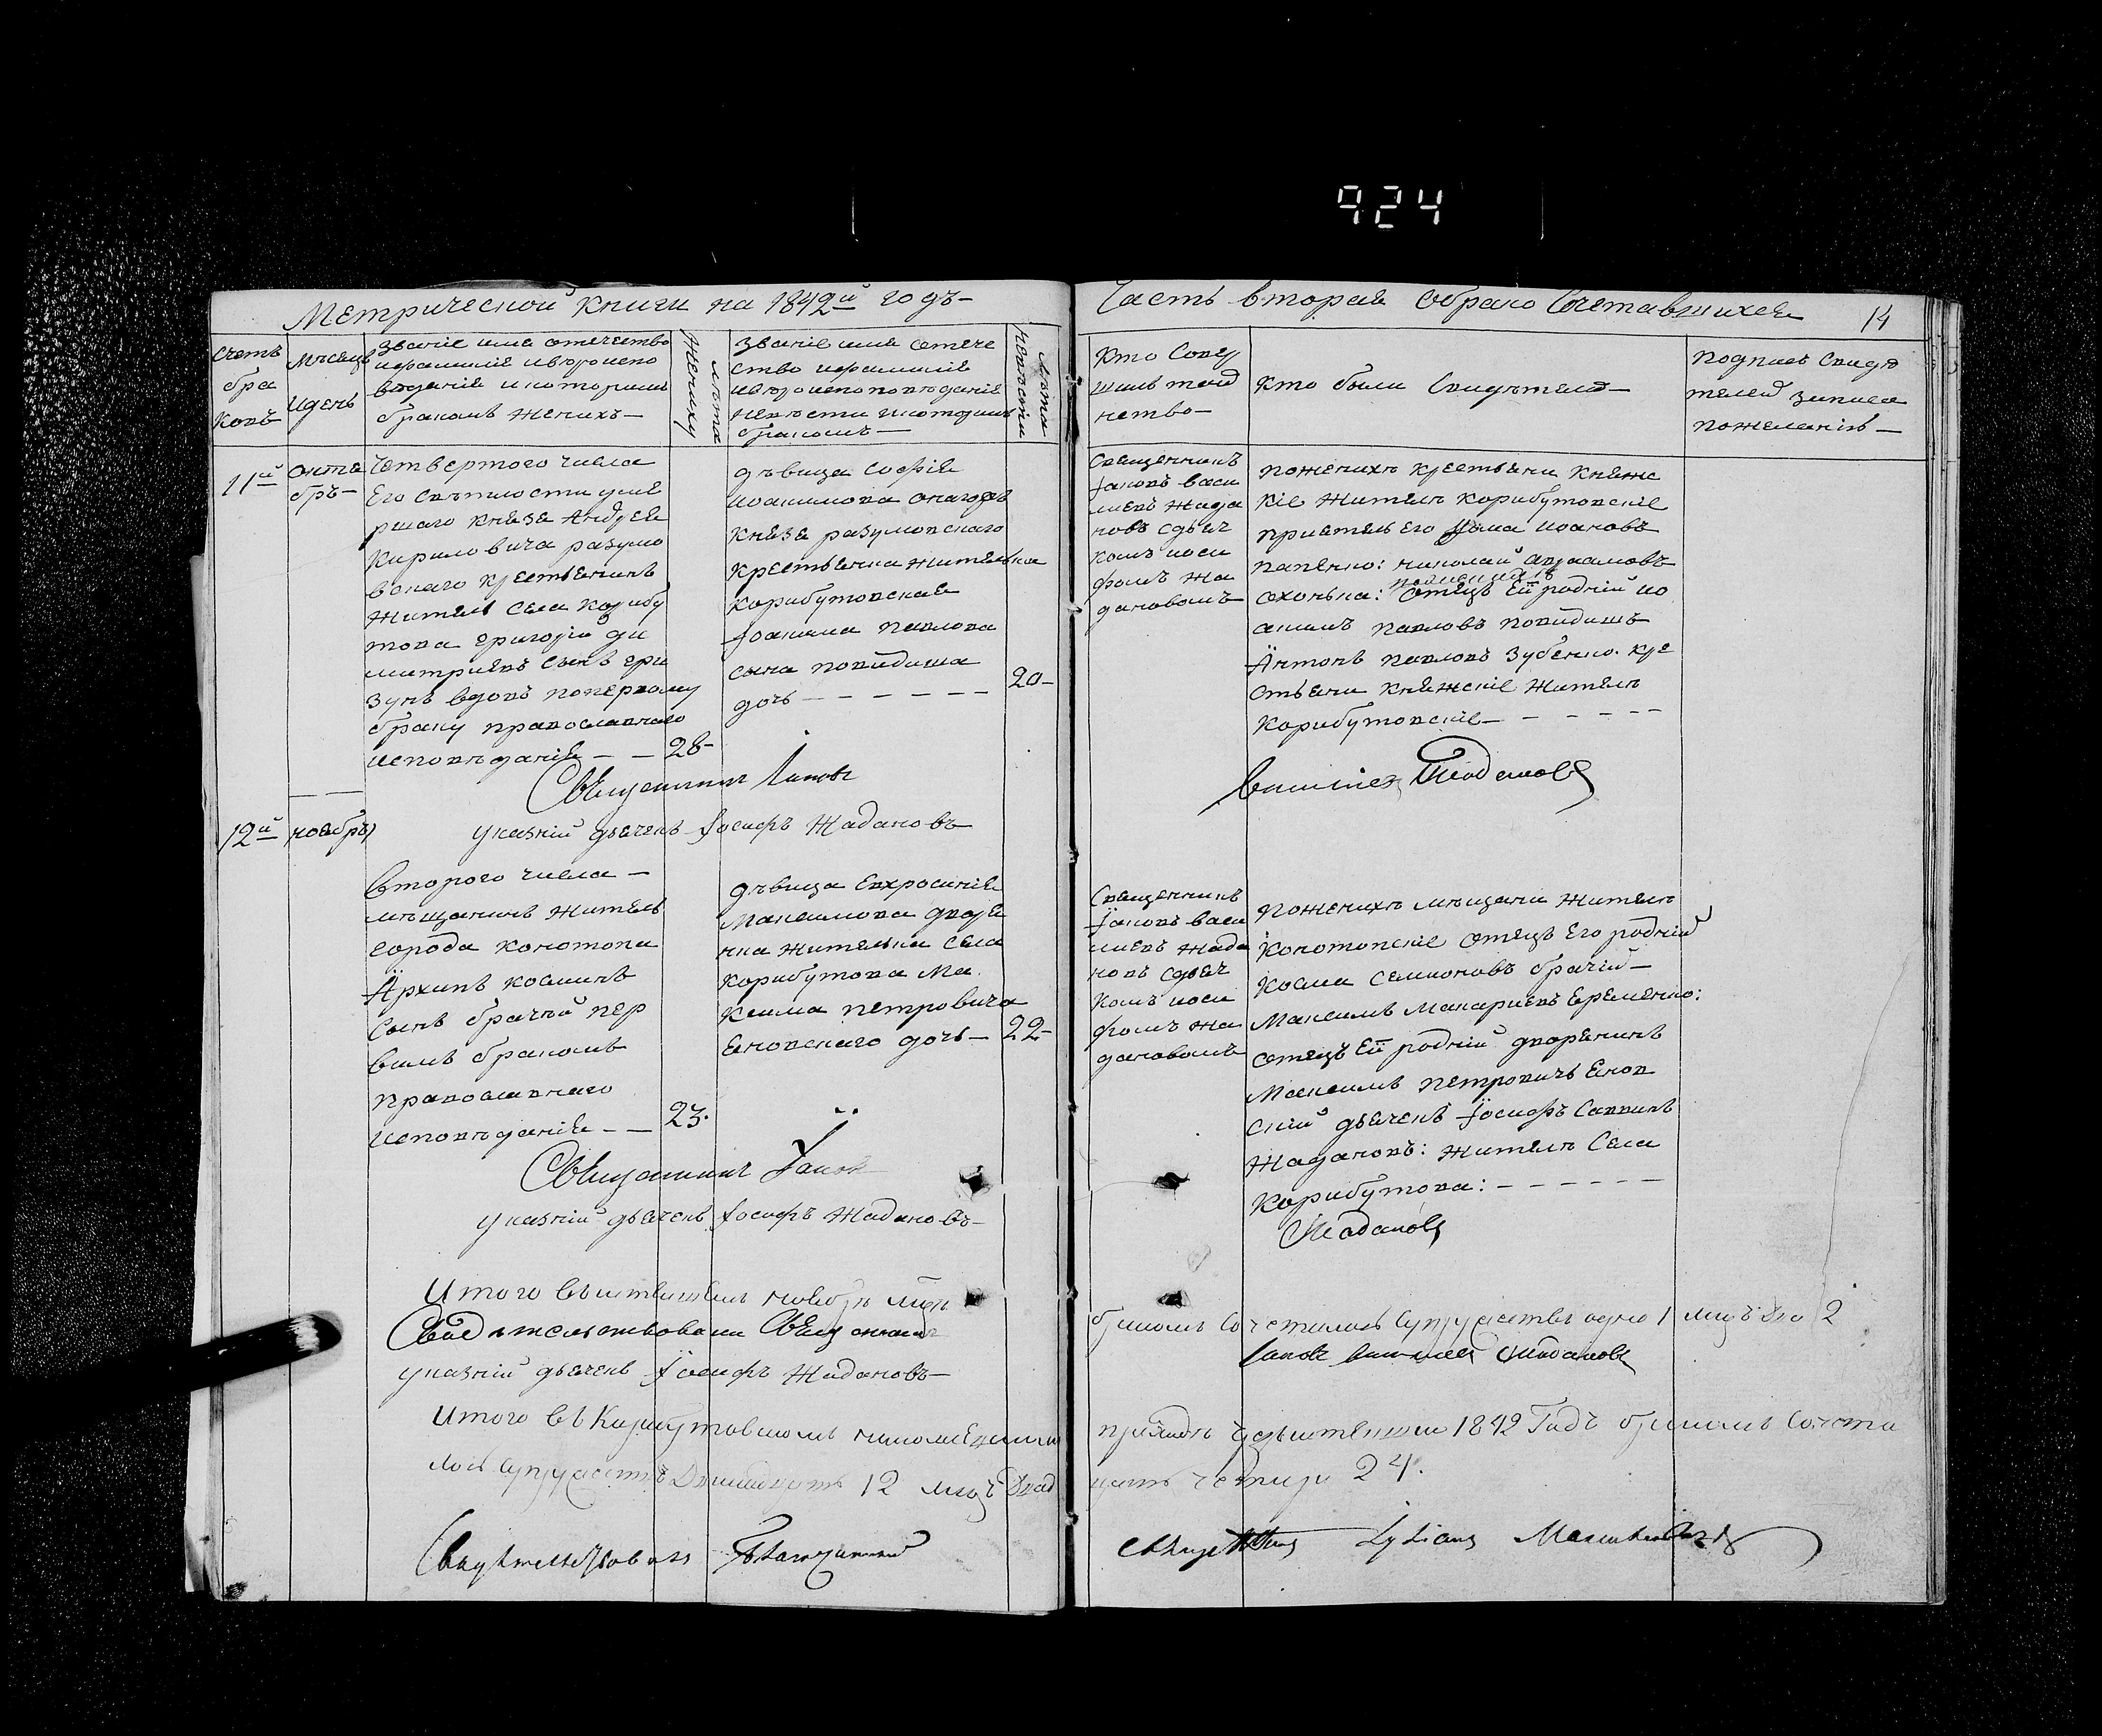 924
Метрической книги на 1842й годъ-
Часть вторая о брако Сочетавшихся
14
Счетъ
бра
ковъ
Мѣсяцъ
и день
Звание имя отечество
и фамилия и вѣроиспо
ведание и которымъ
бракомъ женихъ-
Лѣта
Жениху
Звание имя отече
ство и фамилия
и вѣроисповѣдание
невѣсти и которимъ
бракомъ-
Лѣта
Невѣсти
Кто Совер
шилъ таи
нство-
Кто были Свидѣтели-
Подписъ Свидѣ
телей записа
пожеланію-
11й
октя
брь-
Четвертого числа
Его Свѣтлости уме
ршаго князя Андрея
Кириловича разумо
вскаго крестьянинъ
житель села Корибу
това Григорій ди
митриевъ сынъ гри
зунъ вдовъ попервому
браку православнаго
исповѣдания - - 28-
дѣвица София
иоакимова онагожъ
князя разумовскаго
крестьянка жителька
корибутовская
Иоакима павлова
сына повидиша
дочь - - - - - - 20-
Священникъ
Іаковъ васи
лиевъ Жада
новъ Сдьяч
комъ иоси
фомъ Жа
дановомъ
пожениху крестьяни княжс
кіе жители корибутовскіе
приятель его иоановъ
папенко: николай авраамовъ
сохонька: отецъ Ей родній ио
акимъ павловъ повидишъ
Антонъ павловъ Зубенко кре
стьяни княжскіе жители
корибутовскіе - - - - -
Священникъ Іаковъ
Василиевъ Жадановъ
указній дьячекъ Іосифъ Жадановъ
12й
ноябрь
второго числа -
мѣщанинъ житель
города конотопа
Архипъ косминъ
сынъ брачій пер
вимъ бракомъ
православнаго
исповѣдания - - 23.
дѣвица Евхросиния
Максимова дворя
нка жителька села
корибутова Ма
ксима петровича
Яновскаго дочь - 22-
Священникъ
Іаковъ васи
лиевъ Жада
новъ Сдьяч
комъ иоси
фомъ Жа
дановомъ
пожениху мѣщани жители
конотопскіе отецъ Его родній
косма семионовъ брачій-
Максимъ Макариевъ Еременко:
отецъ Ей родній дворянинъ
Максимъ петровичъ Янов
скій дьячекъ Іосифъ Саввинъ
Жадановъ: жители села
корибутова: - - - - - -
Священникъ Іаков
Жадановъ
указній дьячекъ Іосифъ Жадановъ-
Итого в ноябрѣ мцѣ
бракомъ Сочеталось Супружествъ одно 1 лицъ два 2
Свидѣтельствовали Священникъ
Іаковъ Василиев Жадановъ
указній дьячекъ Іосифъ Жадановъ-
Итого въ Корибутовскомъ
приходѣ 1842 Годъ бракомъ Сочета
лось Супружествъ Двѣнадцать 12 лицъ Двад
цать четыри 24.
Свидѣтельствовалъ Благочинный
Священникъ